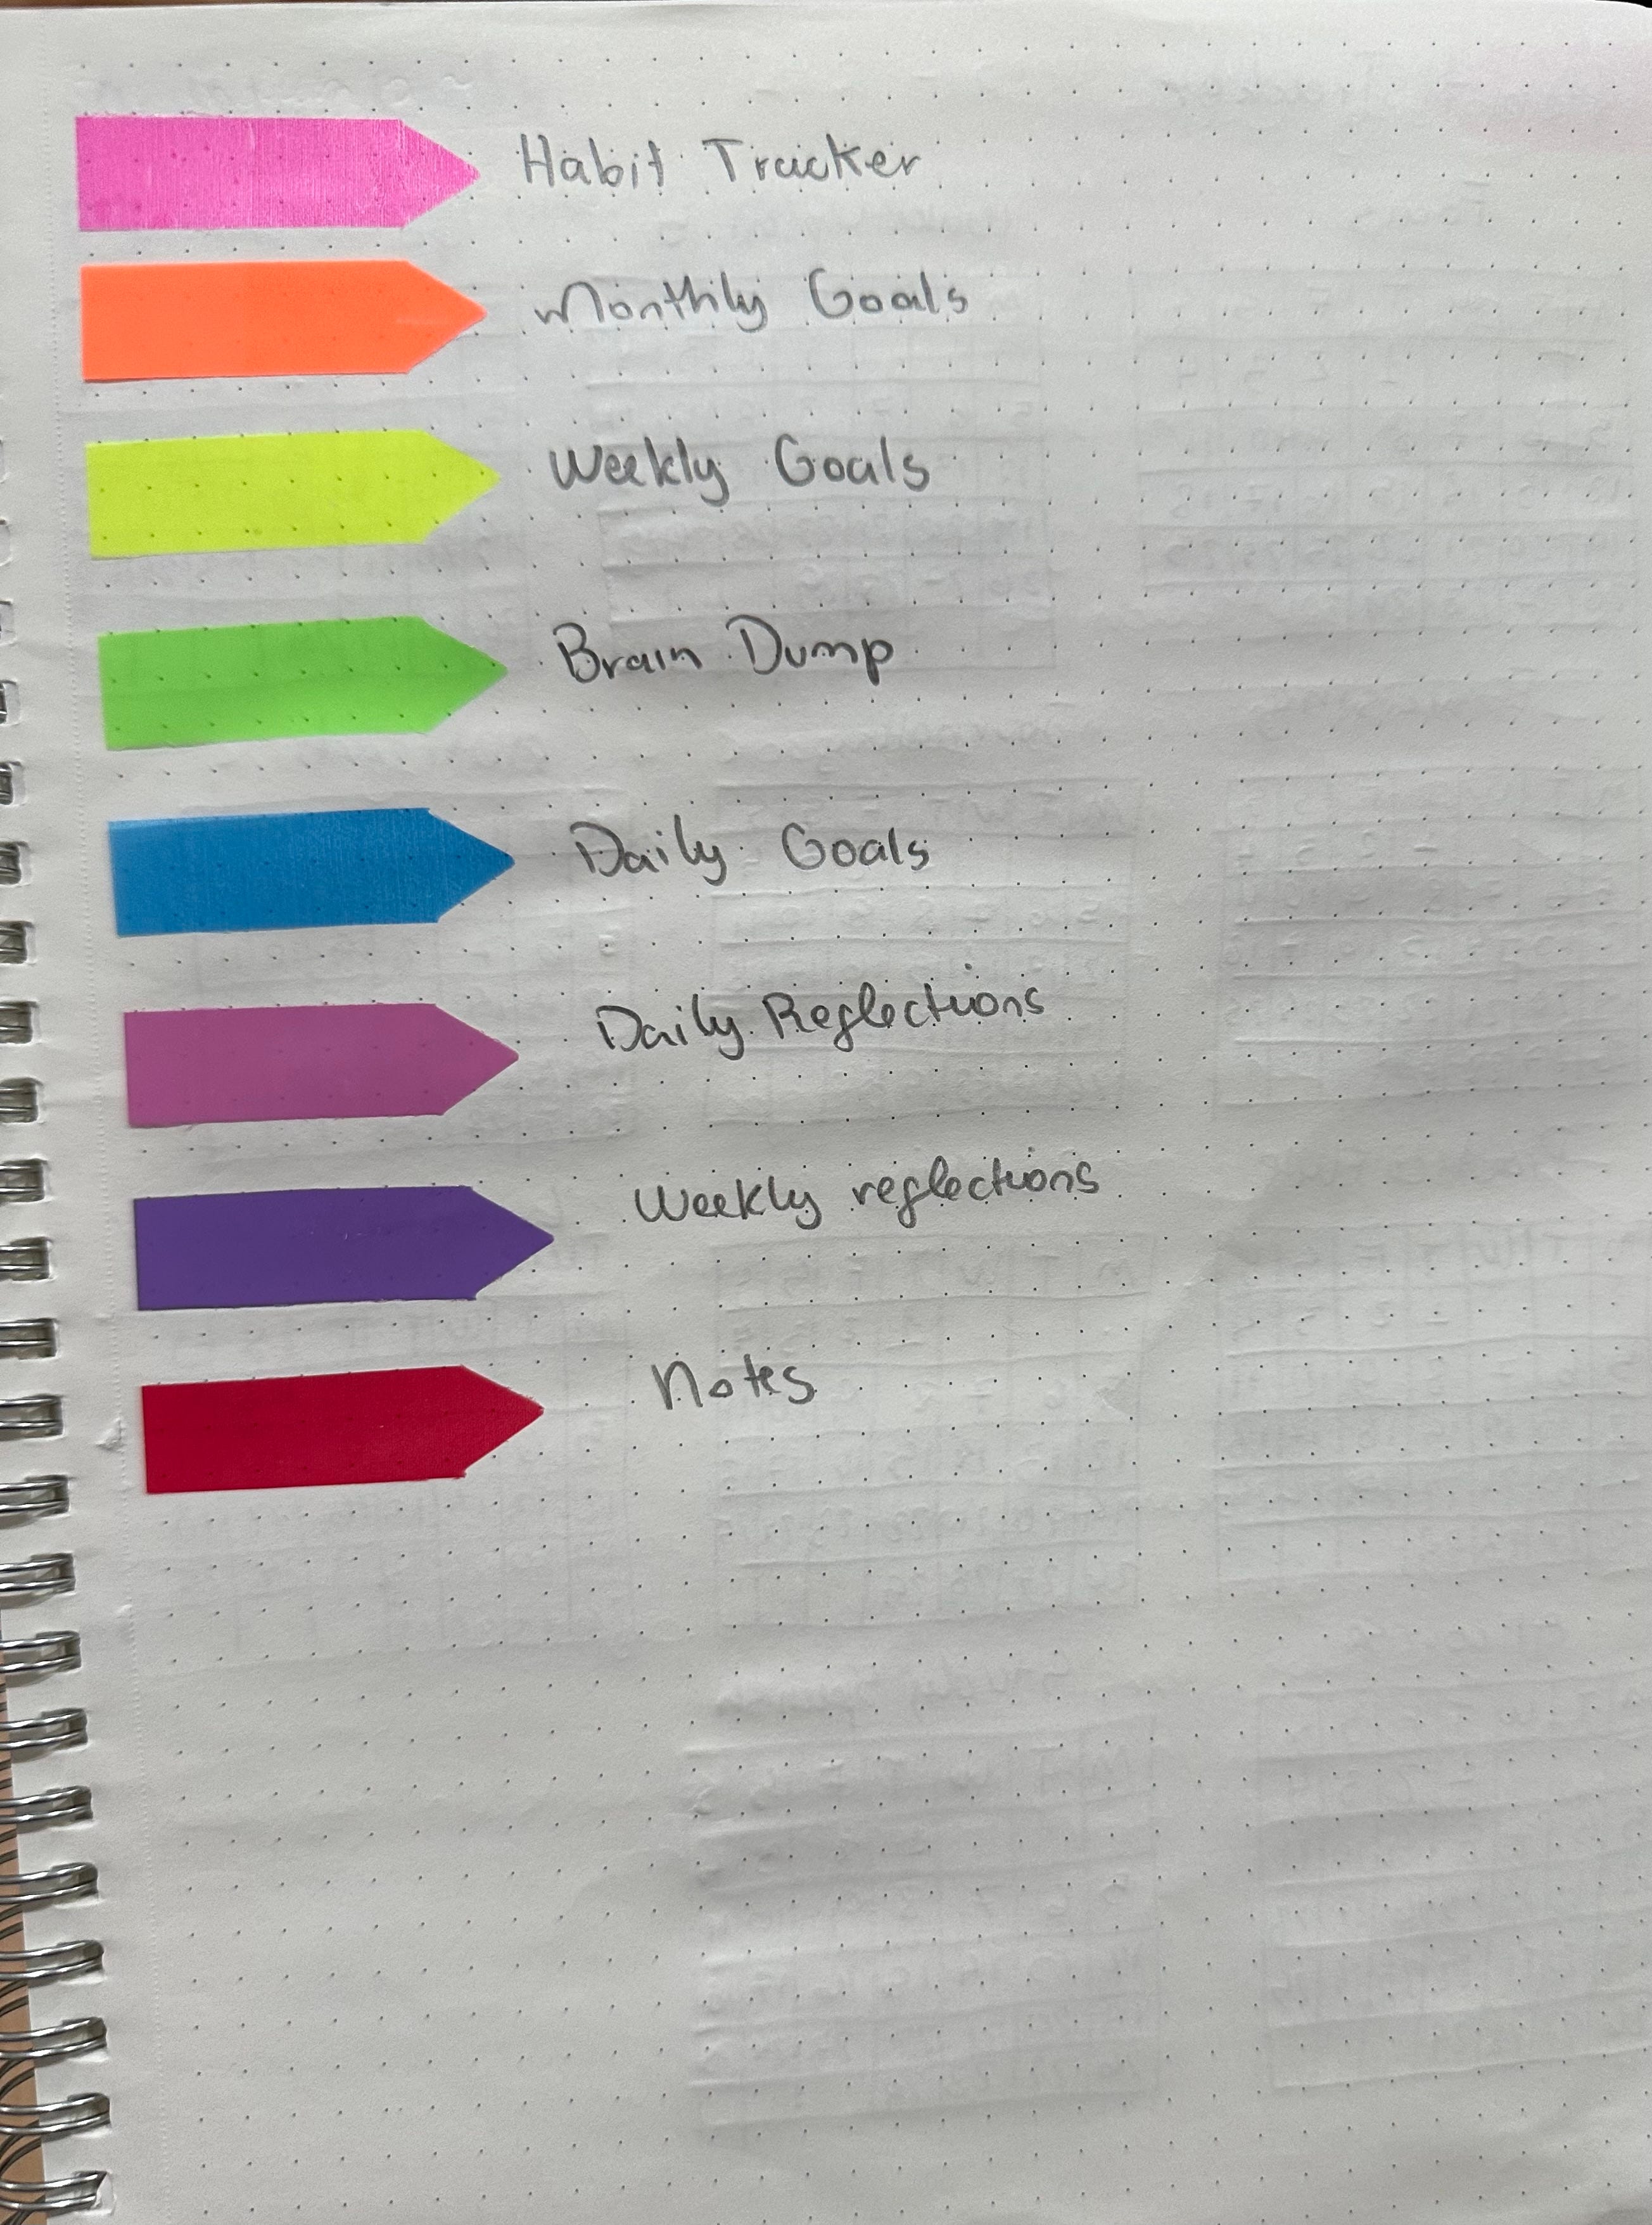 Habit Tracker
Monthly Goals
Weekly Goals
Brain Dump
Daily Goals
Daily Reflections
Weekly reflections
Notes